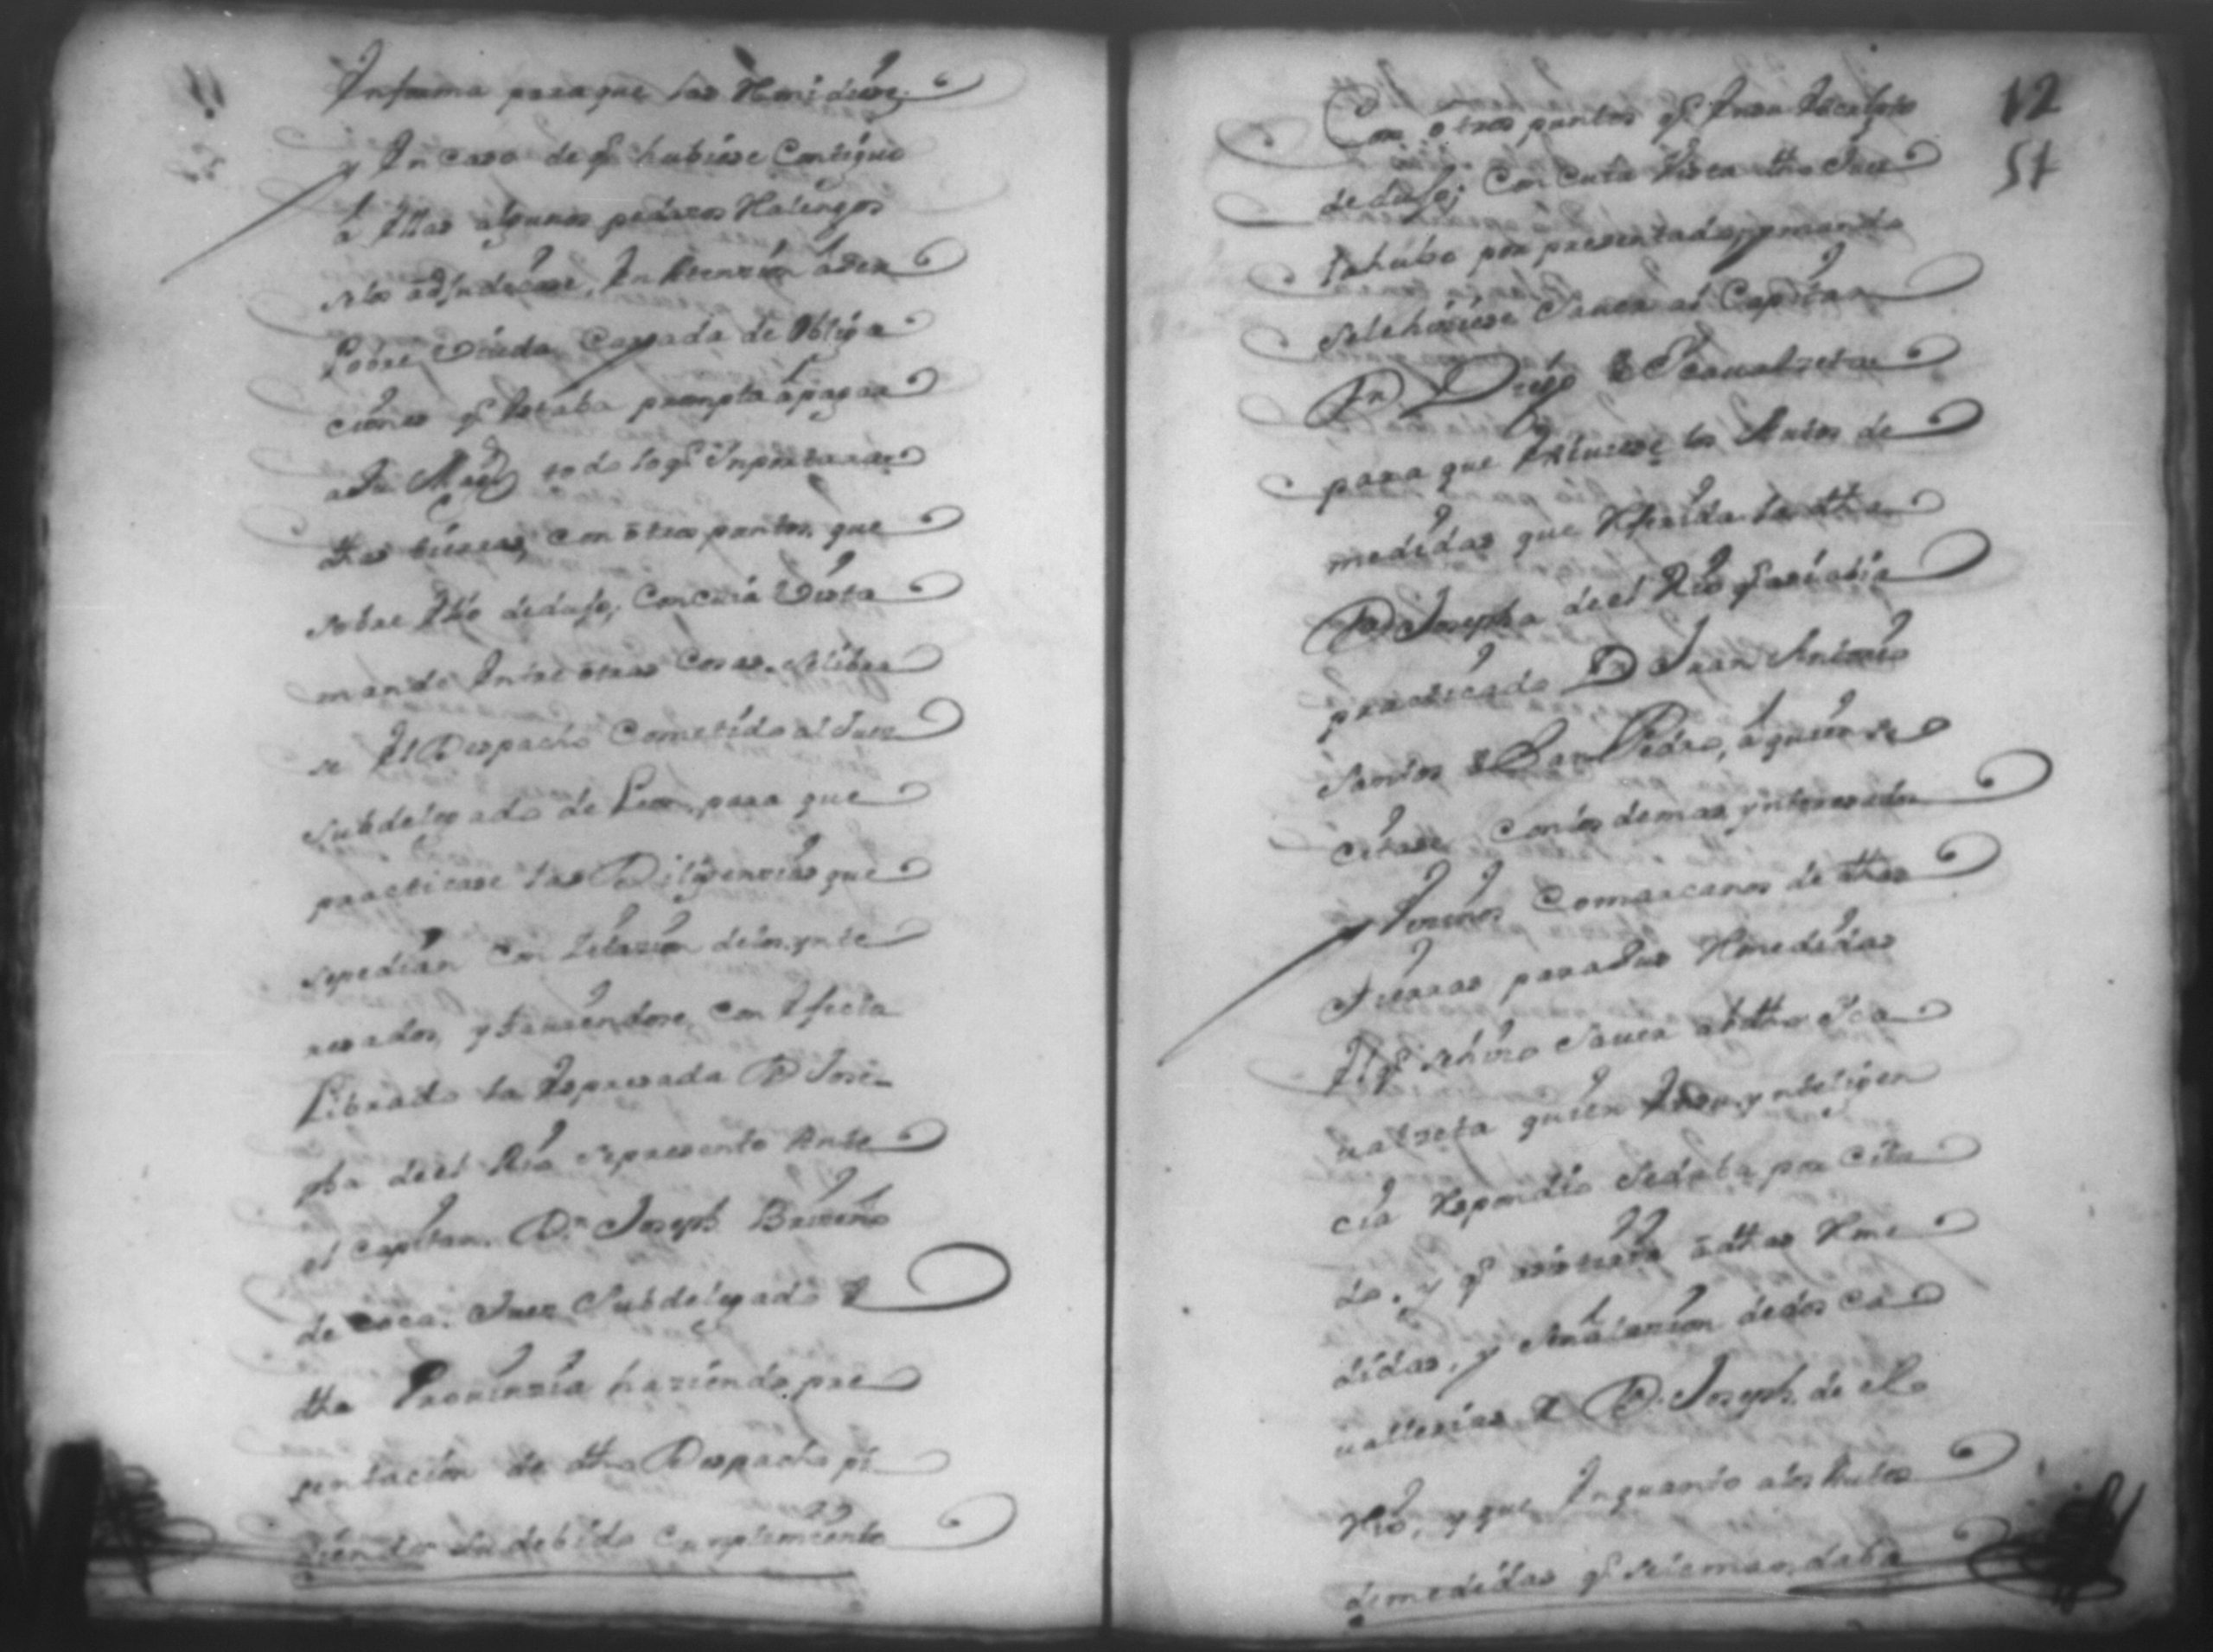 Informa para que las Remidiese
y En caso de q.e hubiese Contiguo
a Ellas algunos pedazos Realengos
se los adjudicase, En atenzion a ser
Pobre Viuda Cargada de Obliga
ciones q.e Estaba prompta a pagar
a Su Mag.d todo lo q.e Inportaran
dhas tierras, con otros puntos, que
sobre Ello dedujo, Con cuia Vista
mande Entre otras Cosas, se libra
se El Despacho Cometido al Juez
Subdelegado de Leon, para que
practicase las Diligenzias que
se pedian Con Zitazion de los ynte
resados, y haviendose, Con Efecto
Librado la Espresada D. Jose-
pha de el Rio se presento Ante
el Capitan. D.n Joseph Brizeño
de Coca. Juez Subdelegado de
dha Provinzia haziendo, pre
sentacion de dho Despacho pi
diendo Su debido Cumplimiento
12
51
Con otros puntos q.e En su Escripto
dedujo; Con Cuia Vista dho Juez
lo hubo por presentado, y mando
se le hiziese Saver al Capitan
D.n Diego de
para que Estuviese los Autos de
medidas que Referida la dha
D.a Josepha de el Rio q.e avia
practicado D. Juan Antonio
Santos de San Pedro, a quien se
citase Con los demas ynteresados
y Vezinos Comarcanos de dhas
tierras para Sus Remedidas
El q.e se hizo Saver a dho
quien En su yntelixen
cia Respondio Se daba por Cita
do, y q.e asistiria a dhas Reme
didas, y de dos ca
vallerias de D. Joseph de el
Rio, y que En quanto a los Autos
de medidas q.e se le mandaba